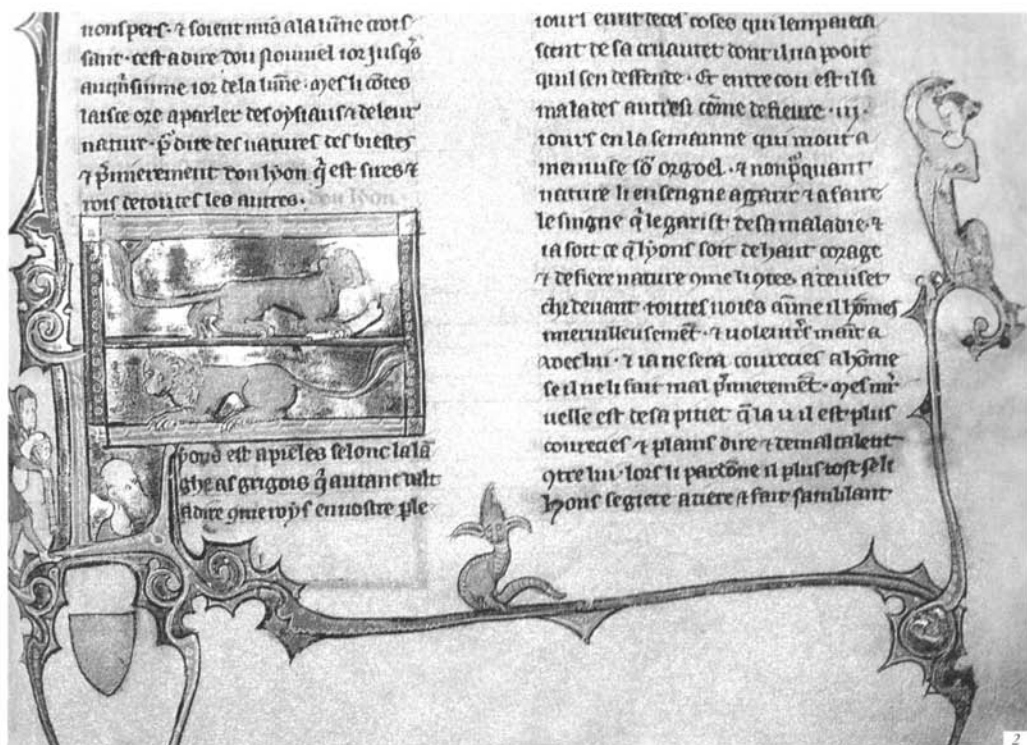 nonspers · ⁊ soient mis a la lune crois
sant · cest a dire dou nouuel ior jusqs
au qnsime ior de la lune · mes li cōtes
laisce ore a parler des oysiaus ⁊ de leur
nature · p̄ dire des natures des biestes
⁊ p̄mierement dou lyon q̄ est sires ⁊
rois de toutes les autres ·
yons est apieles selonc la lā
ghe as grigois q̄ autant ualt
a dire 9me roys en nostre ple
iours
sent de sa cruautet dont il na pooir
quil sen deffende · Et entre cou est il si
malades autresi cōme de fieure · iij ·
iours en la semainne qui mout a
menuse sō orgoel · ⁊ nonp̄quant
nature li ensengne a garir ⁊ a faire
le singne q̄ le garist de sa maladie · ⁊
ia soit ce q̄ lyons soit de haut corage
⁊ de fiere nature 9me li 9tes a deuiset
chi deuant · toutes uoies aīme il hōmes
meruilleusemēt · ⁊ uolent's maīt a
uoec lui · ⁊ ia ne sera courecies a hōme
se il ne li fait mal p̄mieremēt · mes mr
uelle est de sa pitiet q̄ la u il est plus
courecies ⁊ plains dire ⁊ de mal talent
9tre lui · lors li pardōne il plus tost se li
hons se giete a tiere ⁊ fait samblant
2